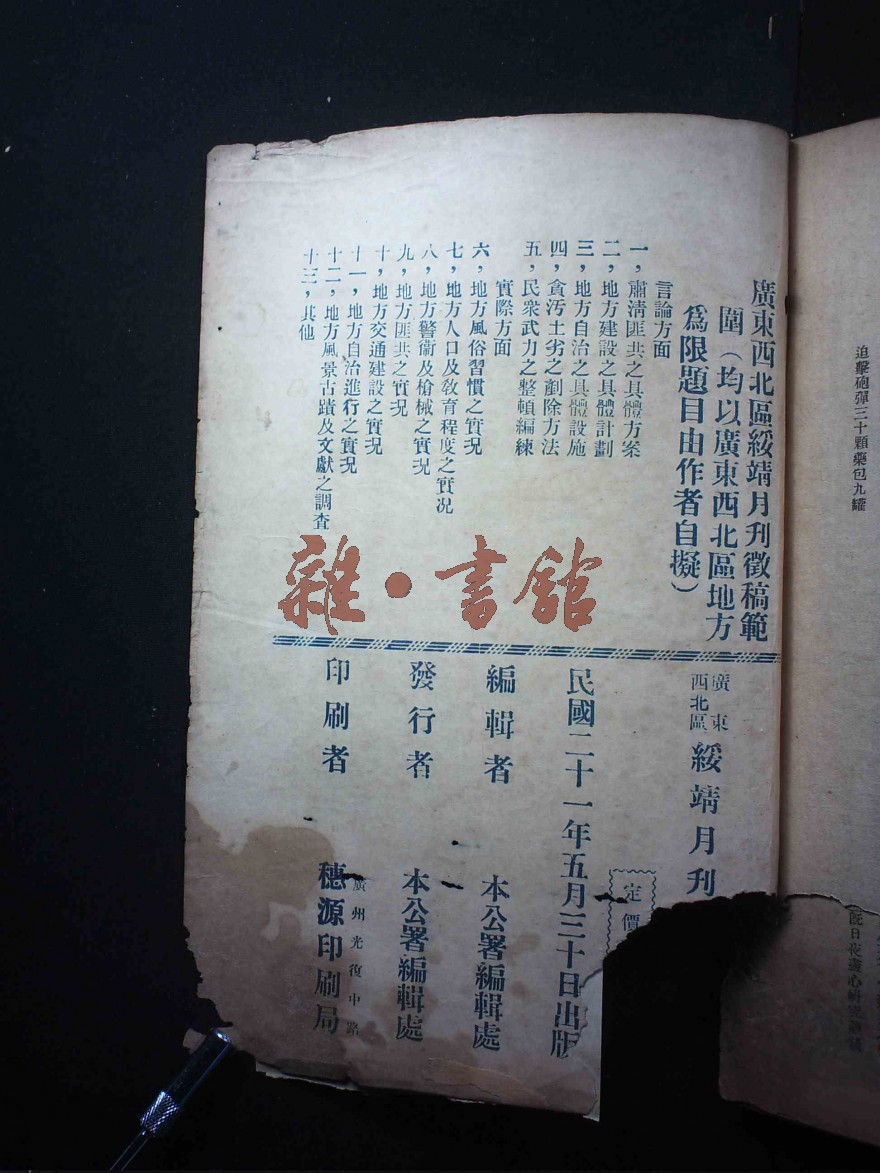 迫擊砲彈三十顆藥包九罐
既日夜盡心研究
廣東西北區綏靖月刊徵稿範
圍（均以廣東西北區地方
爲限題目由作者自擬）
言論方面
一，肅清匪共之具體方案
二，地方建設之具體計劃
三，地方自治之具體設施
四，貪污土劣之剷除方法
五，民衆武力之整頓編練
實際方面
六，地方風俗習慣之實況
七，地方人口及敎育程度之實況
八，地方警衞及槍械之實況
九，地方匪共之實况
十，地方交通建設之實況
十一，地方自治進行之實況
十二，地方風景古蹟及文獻之調査
十三，其他
雜·書館
廣東
西北區
綏靖月刊
定價
民國二十一年五月三十日出版
編輯者 本公署編輯處
發行者 本公署編輯處
廣州光復中路
印刷者 穗源印刷局